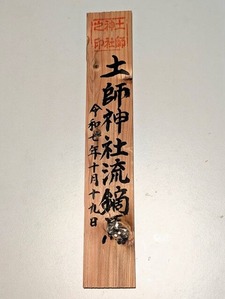 土師神社流鏑馬
令和七年十月十九日